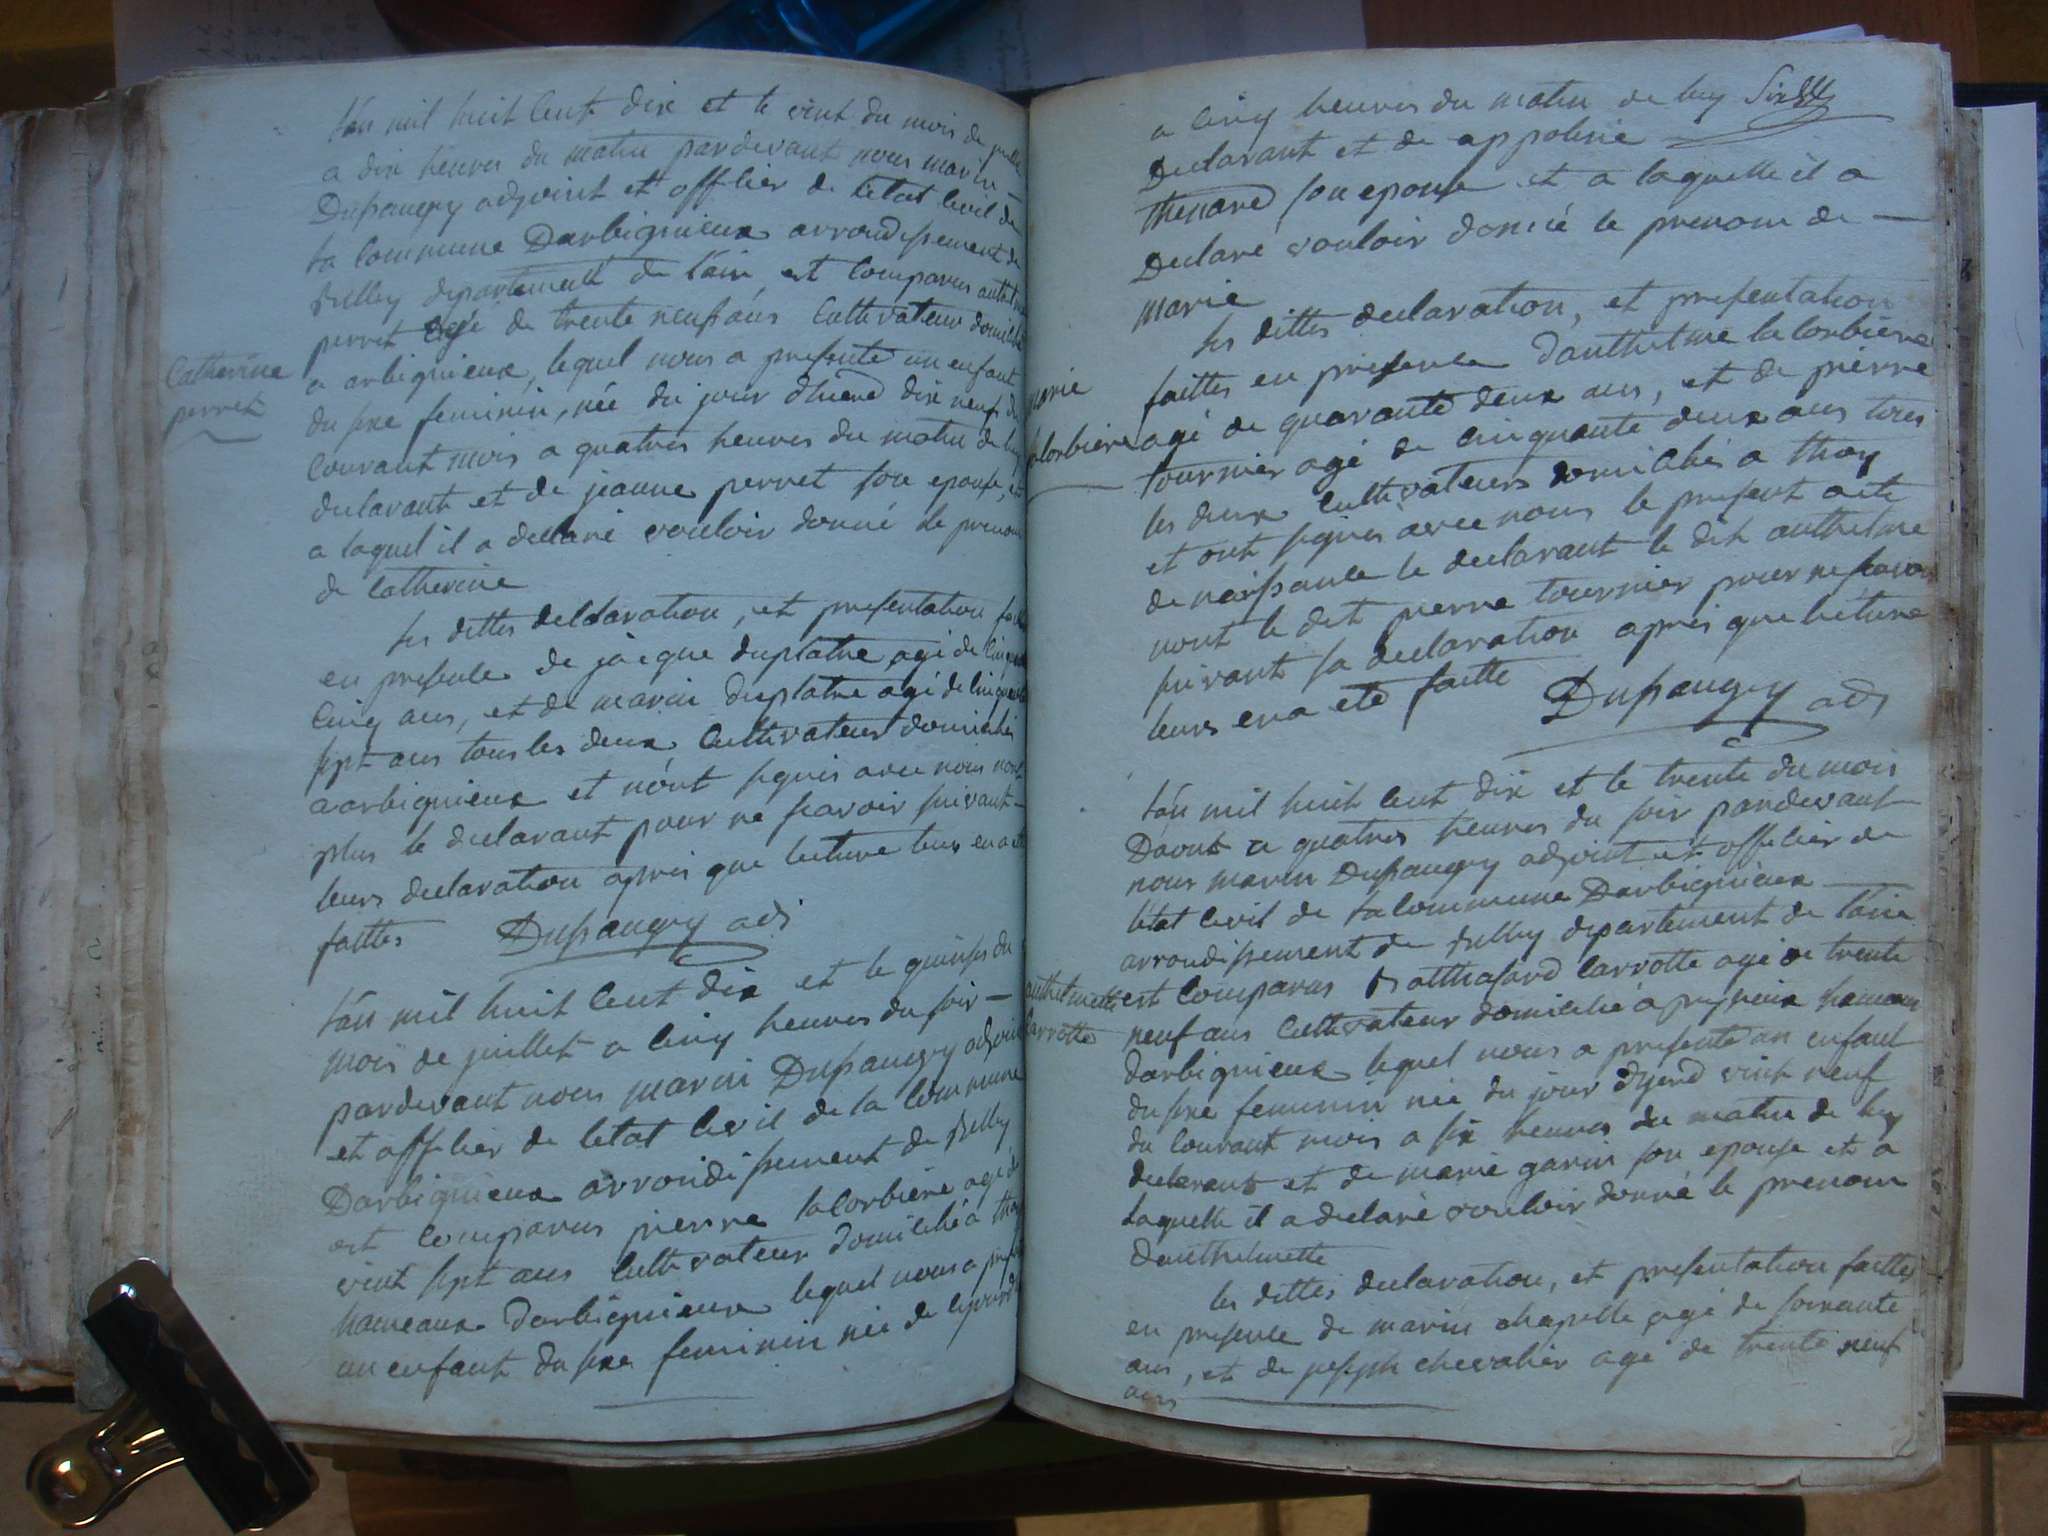 Lán mil huit cent dix et le vint du mois de juillet
a dix heures du matin pardevant nous marin
Dupaugey adjoint et officier de letat civil de
la commune Darbignieux arrondissement de
Belley departement de l'ain, est comparus
perret agé de trente neuf ans Cultivateur domicilié
a arbignieux, lequel nous a presenté un enfant
du sexe feminin, née du jour dhiere dix neuf du
Courant mois a quatres heures du matin de luy
declarant et de jeanne perret son epouse, et
a laquel il a declaré vouloir donné le prenom
de Catherine
Catherine
perret
les dittes declaration, et presentation
en presence de jacque duplatre agé de cinquante
cinq ans, et de marin duplatre agé de cinquante
sept ans tous les deux Cultivateurs domiciliés
a arbignieux et n'ont signés avec nous non
plus le declarant pour ne scavoir suivant
leurs declaration apres que lecture leur en a été
faittes Dupaugey adj
Lán mil huit cent dix et le quinse du
mois de juillet a cinq heures du soir
pardevant nous marin Dupaugey adjoint
et officier de letat civil de la commune
Darbignieux arrondissement de Belley
est comparus pierre lacorbiere agé de
vint sept ans Cultivateur domicilié a thoy
hameaux Darbignieux lequel nous a
un enfant du sexe feminin née de
a cinq heures du matin de luy
Declarant et de appolinie
thenard son epouse et a laquelle il a
Declaré vouloir donné le prenom de
marie
les dittes declaration, et presentation
faittes en presence danthelme lacorbiere
agé de quarante deux ans, et de pierre
tournier agé de cinquante deux ans tous
les deux Cultivateurs domiciliés a thoy
et ont signés avec nous le present acte
de naissance le declarant le dit anthelme
nont le dit pierre tournier pour ne scavoir
suivant sa declaration apres que lecture
leurs en a eté faitte Dupaugey adj
marie
lacorbiere
Lán mil huit cent dix et le trente du mois
Daout a quatres heures du soir pardevant
nous marin Dupaugey adjoint et officier de
letat civil de la commune Darbignieux
arrondissement de Belley departement de l'ain
est comparus Balthasard Carrotte agé de trente
neuf ans Cultivateur domicilié a peyzieux hameau
darbignieux lequel nous a presenté un enfant
du sexe feminin née du jour dhier vint neuf
du courant mois a six heures du matin de luy
declarant et de marie garin son epouse et a
laquelle il a declaré vouloir donné le prenom
danthelmette
anthelmette
Carrotte
les dittes declaration, et presentation faittes
en presence de marin chapelle agé de soixante
ans, et de joseph chevalier agé de trente neuf
ans